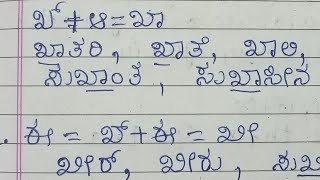 ಖ್+ಆ=ಖಾ
ಖಾತರಿ, ಖಾತೆ, ಖಾಲಿ,
ಸುಖಾಂತ, ಸುಖಾಸೀನ
. ಈ = ಖ್+ಈ = ಖೀ
ಖೀರ್, ಖೀರು,